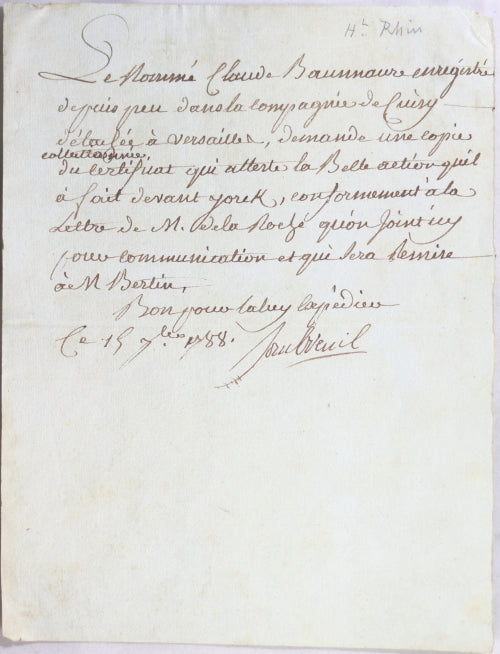 Ht Rhin
Le Nommé Claude Baumaure enregistré
depuis peu dans la Compagnie de Cuiry
détachée à Versailles, demande une copie
collectionnée,
du Certificat qui atteste la Belle action qu'il
à fait devant yorck, conformement à la
Lettre de M. de la Rozé qu'on Joint icy
pour communication et qui sera Remise
à M Bertin,
Bon pour la luy Expédier
Ce 15 7bre 1788.